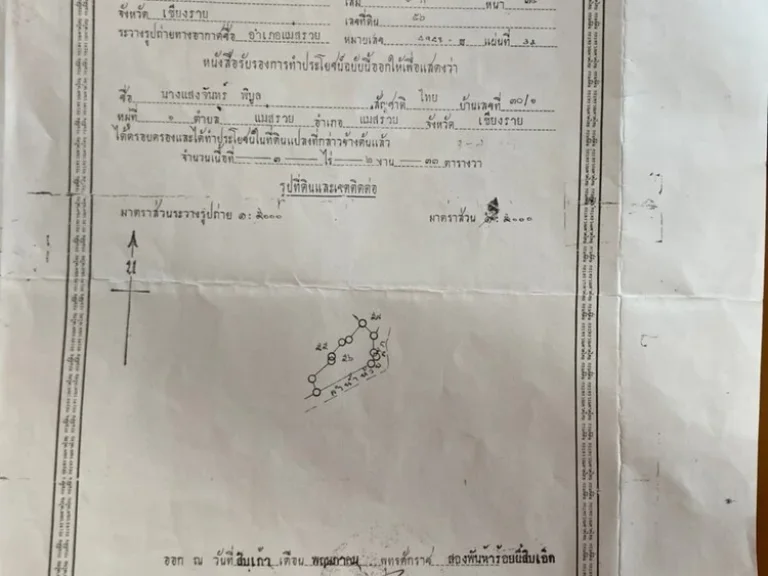 เล่ม หน้า
จังหวัด เชียงราย เลขที่ดิน ๕๖
ระวางรูปถ่ายทางอากาศชื่อ อำเภอแม่สรวย หมายเลข แผ่นที่
หนังสือรับรองการทำประโยชน์ฉบับนี้ออกให้เพื่อแสดงว่า
ชื่อ นางแสงจันทร์ พิบูล สัญชาติ ไทย บ้านเลขที่ ๓๐/๑
หมู่ที่ ๑ ตำบล แม่สรวย อำเภอ แม่สรวย จังหวัด เชียงราย
ได้ครอบครองและได้ทำประโยชน์ในที่ดินแปลงที่กล่าวข้างต้นแล้ว
จำนวนเนื้อที่ ๑ ไร่ ๒ งาน ๓๓ ตารางวา
รูปที่ดินและเขตติดต่อ
มาตราส่วนระวางรูปถ่าย ๑:๕๐๐๐ มาตราส่วน ๑:๕๐๐๐
น
๒๘
๒๒
๒๖
ออก ณ วันที่ สิบเก้า เดือน พฤษภาคม พุทธศักราช สองพันห้าร้อยยี่สิบเอ็ด